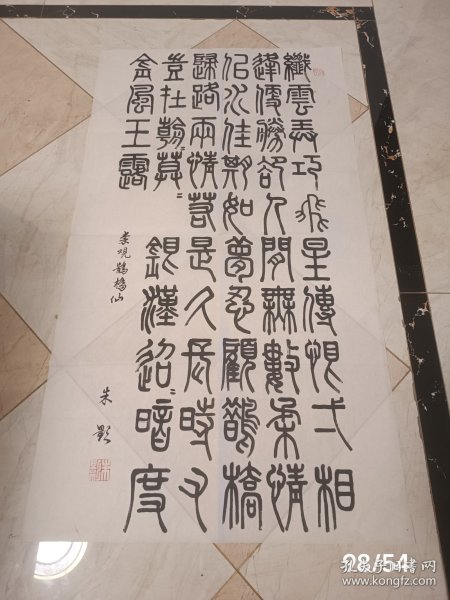 纖雲弄巧飛星傳恨弌相
逢便勝卻人間無數柔情
佀水佳期如夢忍顧鵲橋
歸路兩情若是久長時又
豈在朝〻莫〻銀漢迢〻暗度
金風玉露
秦观鵲橋仙
朱影
28/54
孔夫子旧书网
www.kongfz.com